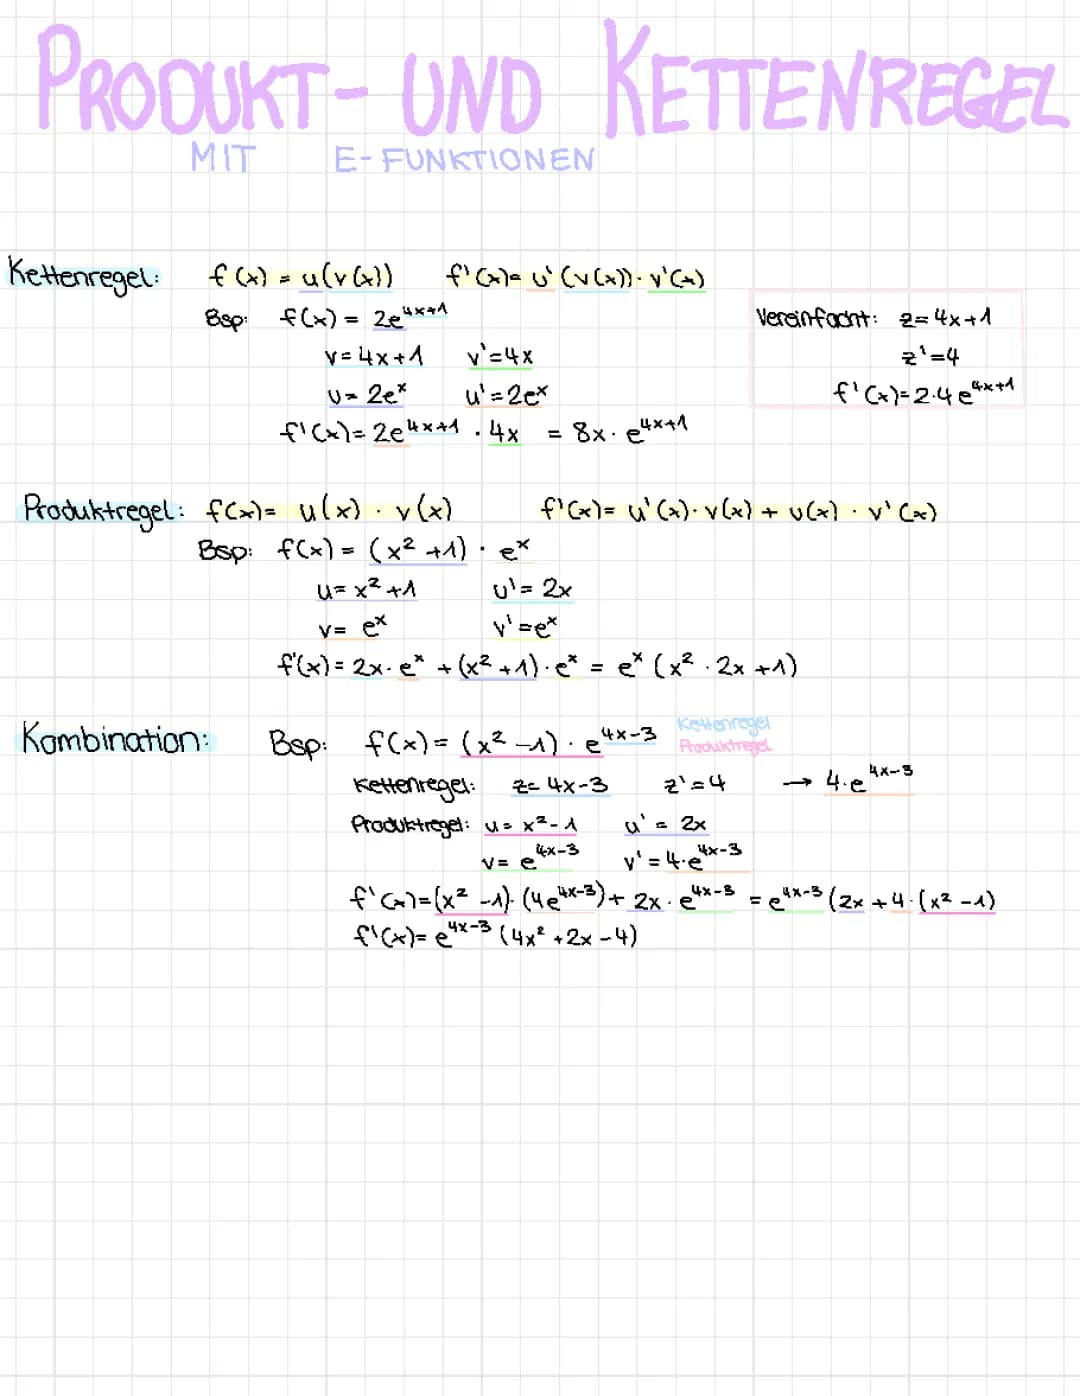 PRODUKT- UND KETTENREGEL
MIT E-FUNKTIONEN
Kettenregel: f(x) = u(v(x)) f'(x)= u'(v(x))·v'(x)
Bsp: f(x) = 2e^{4x+1}
v= 4x+1 v'=4x
u= 2e^x u'=2e^x
f'(x)= 2e^{4x+1} · 4x = 8x· e^{4x+1}
Vereinfacht: z= 4x+1
z'=4
f'(x)=2·4 e^{4x+1}
Produktregel: f(x)= u(x) · v(x) f'(x)= u'(x)·v(x) + u(x) · v'(x)
Bsp: f(x) = (x² +1) · e^x
u= x² +1 u'= 2x
v= e^x v'=e^x
f'(x)= 2x· e^x + (x² +1)·e^x = e^x (x² · 2x +1)
Kombination: Bsp: f(x)= (x² -1) · e^{4x-3} Kettenregel
Produktregel
Kettenregel: z= 4x-3 z'=4 → 4·e^{4x-3}
Produktregel: u= x²-1 u' = 2x
v= e^{4x-3} v' = 4·e^{4x-3}
f'(x)=(x² -1)·(4e^{4x-3})+ 2x·e^{4x-3} = e^{4x-3}(2x +4·(x² -1)
f'(x)= e^{4x-3}(4x² +2x -4)